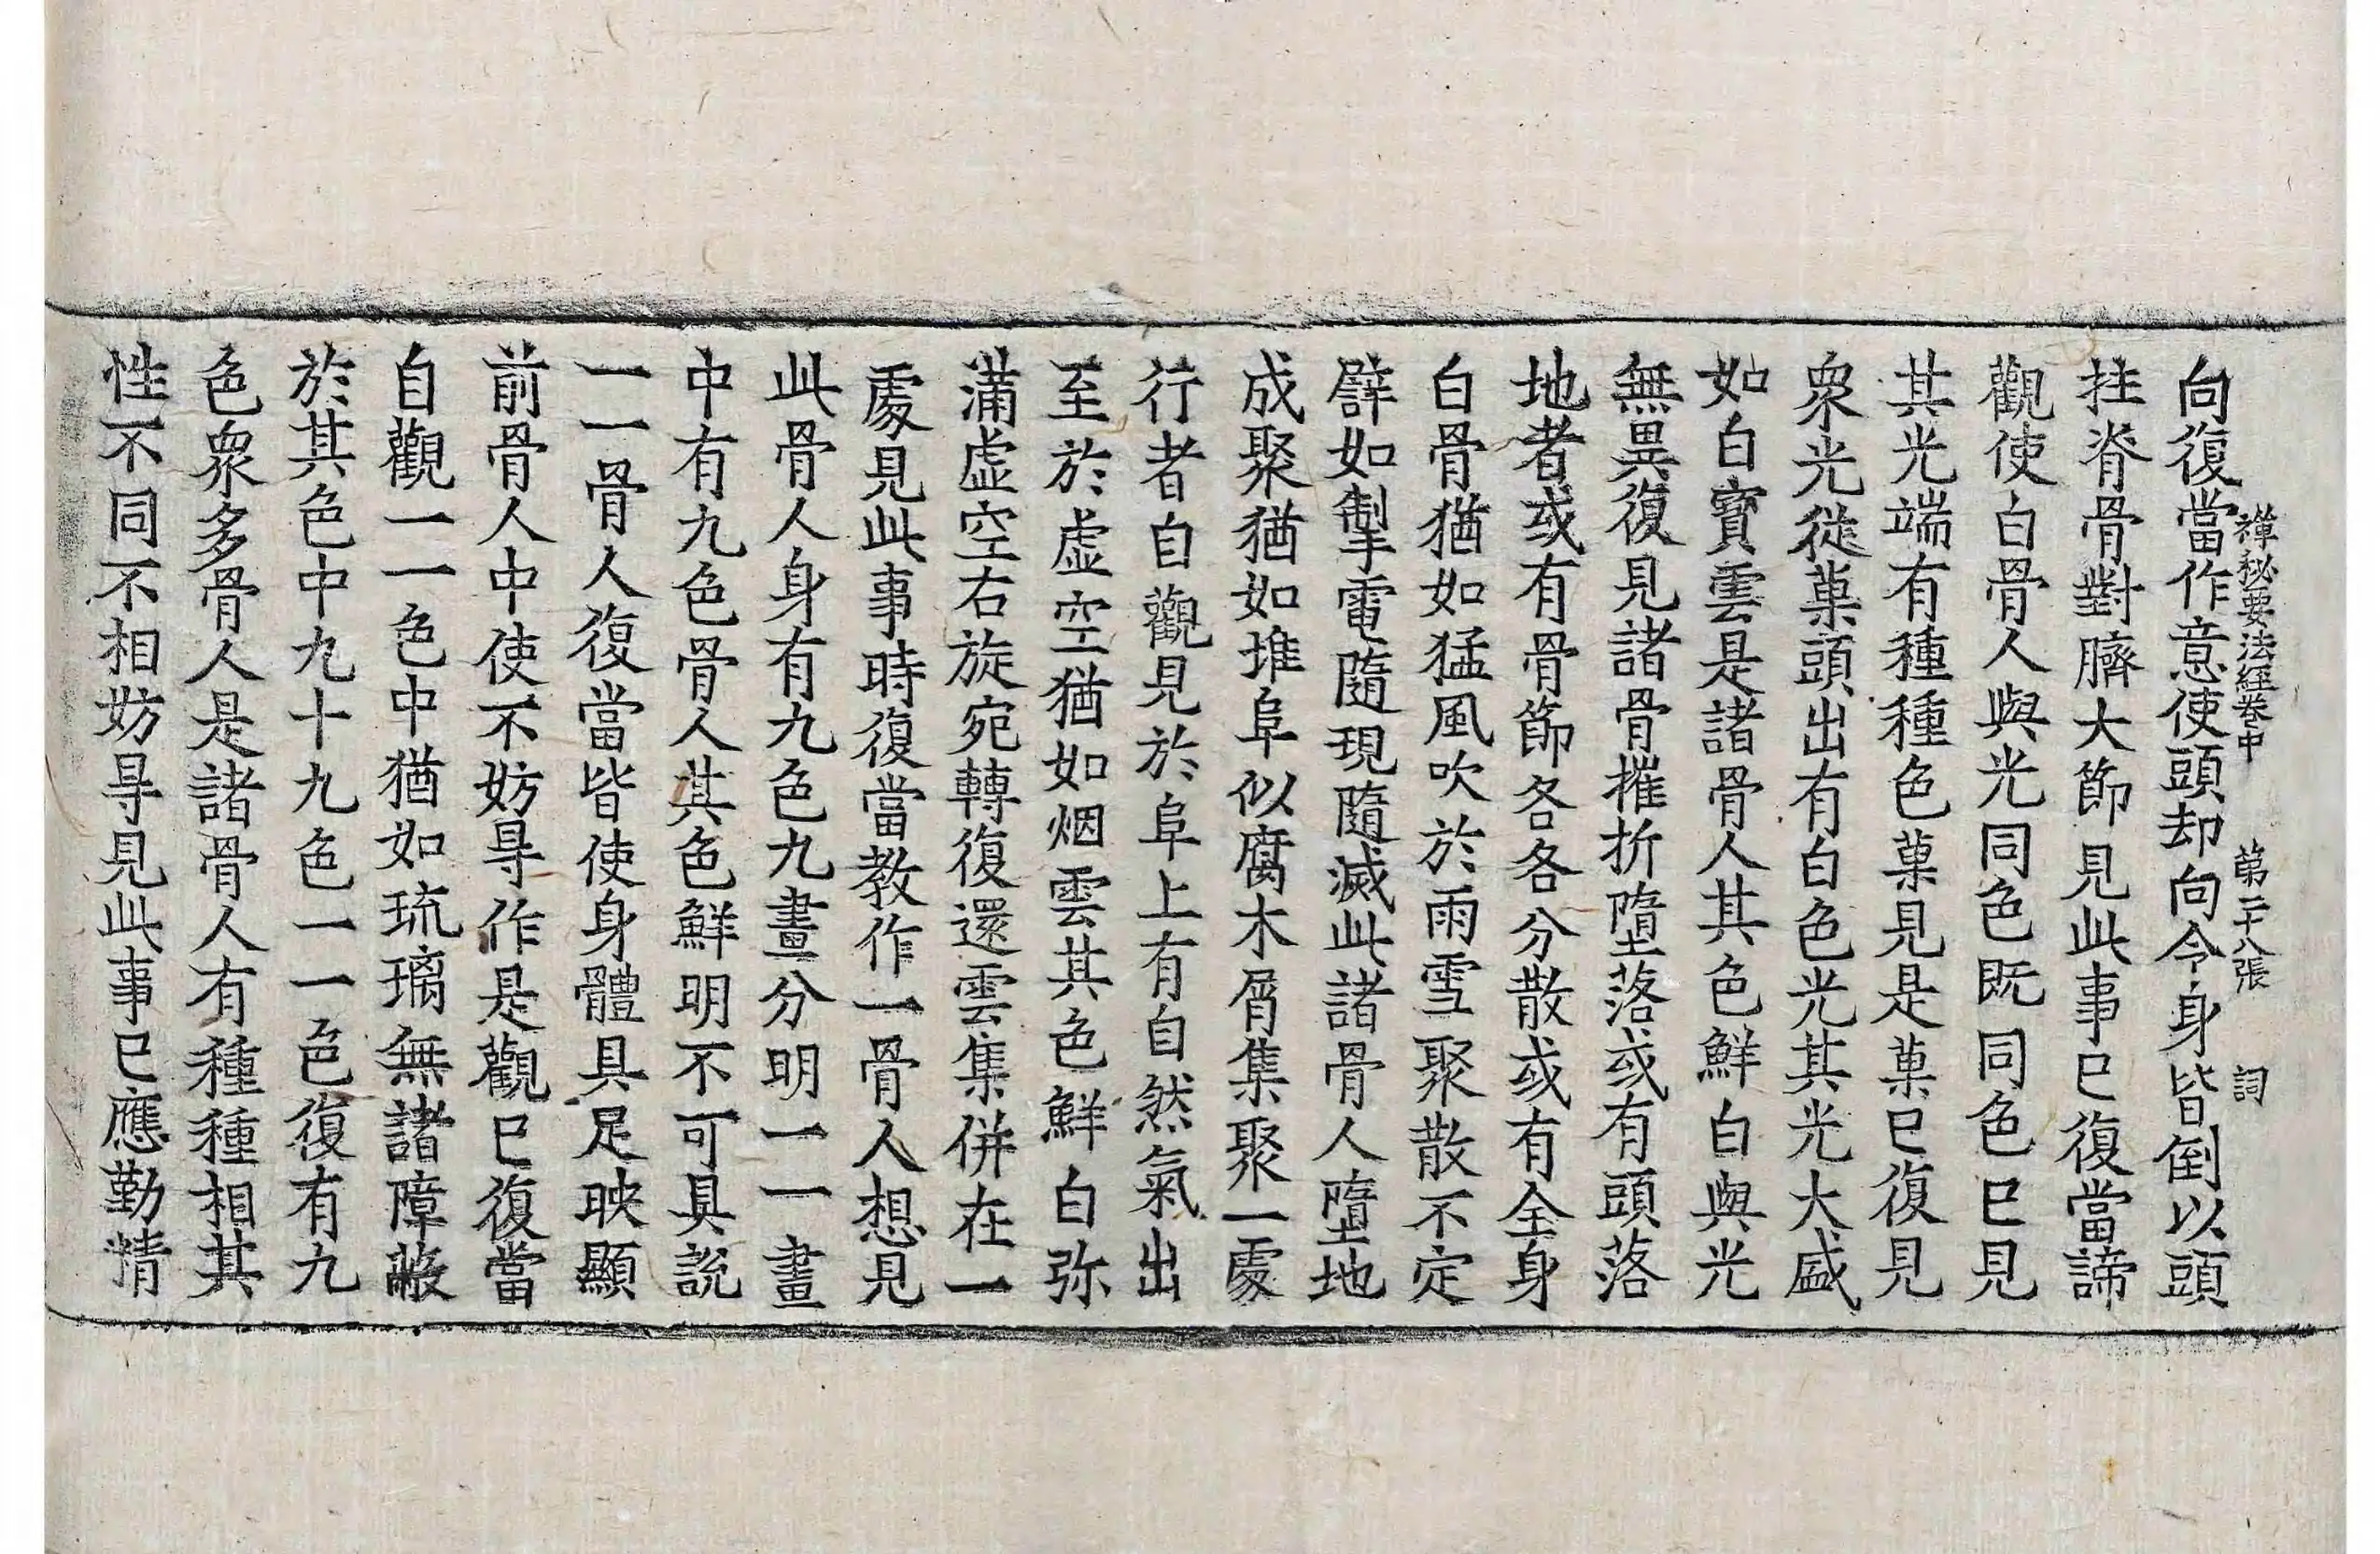 禪秘要法經卷中　第二十八張　詞
向復當作意使頭却向令身皆倒以頭
拄脊骨對臍大節見此事已復當諦
觀使白骨人與光同色既同色已見
其光端有種種色菓見是菓已復見
衆光從菓頭出有白色光其光大盛
如白寳雲是諸骨人其色鮮白與光
無異復見諸骨摧折墮落或有頭落
地者或有骨節各各分散或有全身
白骨猶如猛風吹於雨雪聚散不定
譬如掣電隨現隨滅此諸骨人墮地
成聚猶如堆阜似腐木屑集聚一處
行者自觀見於阜上有自然氣出
至於虛空猶如烟雲其色鮮白弥
滿虛空右旋宛轉復還雲集併在一
處見此事時復當教作一骨人想見
此骨人身有九色九畫分明一一畫
中有九色骨人其色鮮明不可具說
一一骨人復當皆使身體具足映顯
前骨人中使不妨㝵作是觀已復當
自觀一一色中猶如琉璃無諸障蔽
於其色中九十九色一一色復有九
色衆多骨人是諸骨人有種種相其
性不同不相妨㝵見此事已應勤精